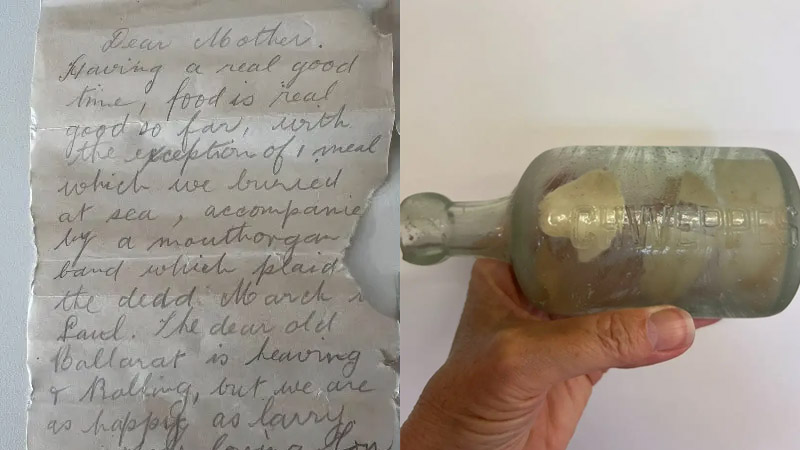 Dear Mother.
Having a real good
time, food is real
good so far, with
the exception of 1 meal
which we buried
at sea, accompanie
by a mouthorgan
band which plaid
the dedd March
Saul. The dear old
Ballarat is heaving
& Rolling, but we are
as happy as larry